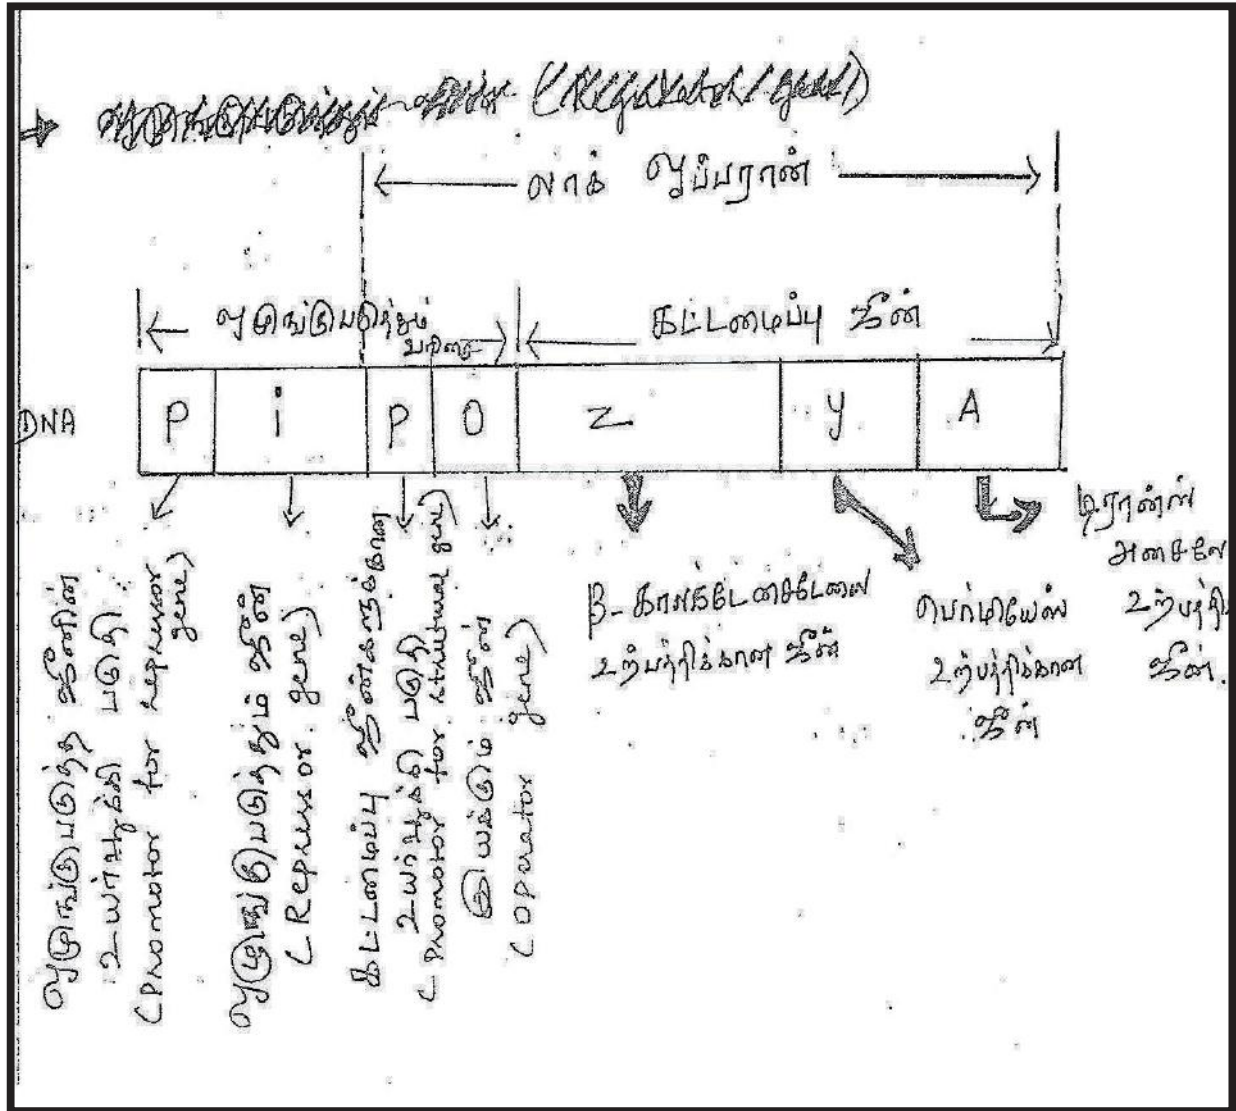 லாக் ஓப்பரான்
ஒழுங்குபடுத்தும்
வரிசை
கட்டமைப்பு ஜீன்
DNA
P i P O Z y A
ஒழுங்குபடுத்த ஜீனின்
உயர்வூக்கி பகுதி
(Promotor for repressor
gene)
ஒழுங்குபடுத்தும் ஜீன்
(Repressor gene)
கட்டமைப்பு ஜீன்களுக்கான
உயர்வூக்கி பகுதி
(Promotor for structural gene)
இயக்கும் ஜீன்
(Operator gene)
உற்பத்திக்கான ஜீன்
பெர்மியேஸ்
உற்பத்திக்கான
ஜீன்
டிரான்ஸ்
ஜீன்.